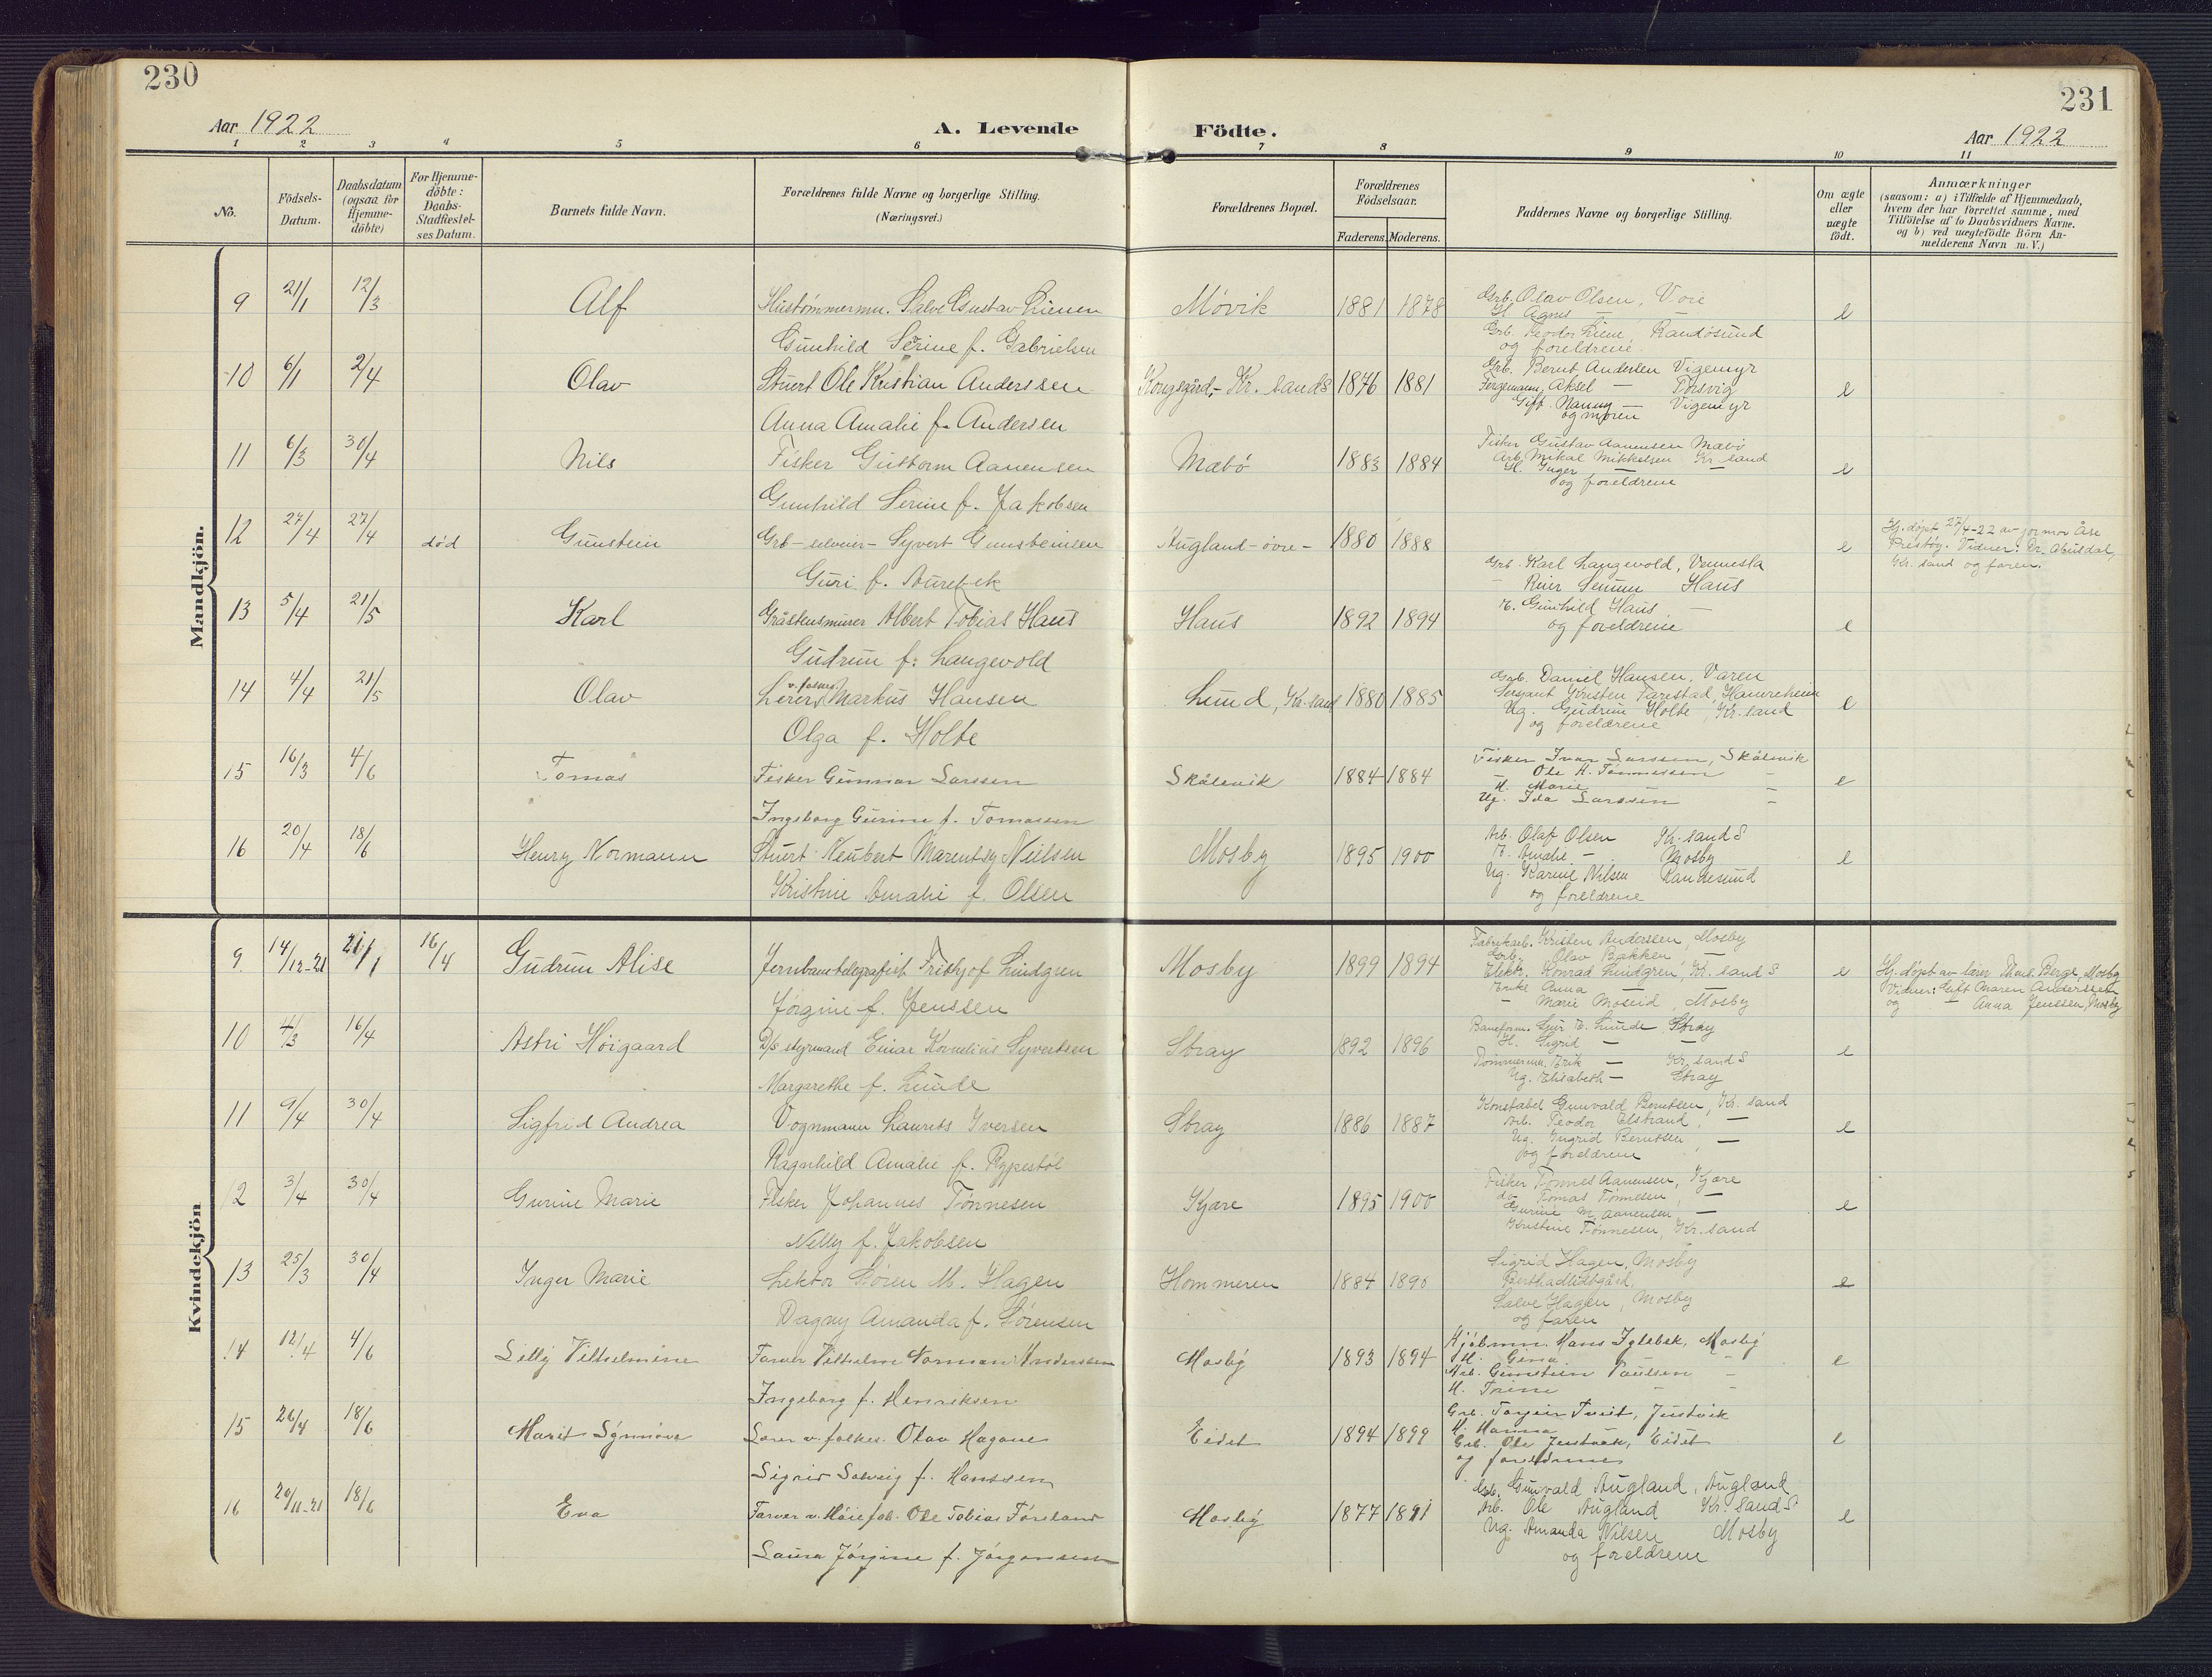 230
231
Aar 1922
A. Levende
Födte.
Aar 1922
1 2 3 4 5 6 7 8 9 10 11
No.
Födsels-Datum.
Daabsdatum (ogsaa for Hjemme-döbte)
For Hjemme-döbte: Daabs-Stadfæstel-ses Datum.
Barnets fulde Navn.
Forældrenes fulde Navne og borgerlige Stilling.
(Næringsvei.)
Forældrenes Bopæl.
Forældrenes Födselsaar.
Faderens. Moderens.
Faddernes Navne og borgerlige Stilling.
Om ægte eller uægte födt.
Anmærkninger
(saasom: a) i Tilfælde af Hjemmedaab, hvem der har forrettet samme, med Tilföielse af to Daabsvidners Navne. og b) ved uægtefödte Börn An-melderens Navn m. V.)
Mandkjön.
9 21/1 12/3 Alf Hustømmermn. Salve Gustav Lienen Møvik 1881 1878 Grb. Olav Olsen, Voie e
Gunhild Serine f. Gabrielsen
H. Agnes —
Grb. Teodor Liene, Randøsund
og foreldrene
10 6/1 2/4 Olav Stuert Ole Kristian Anderssen Kongsgård,- Kr. sands 1876 1881 Grb. Bernt Andersen Vigemyr e
Anna Amalie f. Andersen
Fergemann Aksel — Torsvig
Gift. Nanny — Vigemyr
og moren
11 6/3 30/4 Nils Fisker Guttorm Aanensen Mæbø 1883 1884 Fisker Gustav Aanensen Mæbø e
Gunhild Serine f. Jakobsen
Arb. Mikal Mikkelsen Kr. sand
H. Inger — —
og foreldrene
12 27/4 27/4 død Gunstein Grb-selveier- Syvert Gunsteinsen Augland-øvre- 1880 1888 e Hj. døpt 27/4-22 av jormor Åse
Guri f. Aurebek
Prestøy. Vidner: Dr. Abusdal,
Kr. sand og faren.
13 5/4 21/5 Karl Gråstensmurer Albert Tobias Haus Haus 1892 1894 Grb. Karl Langevold, Vennesla e
Gudrun f. Langevold
— Reier Senum Haus
E. Gunhild Haus —
og foreldrene
14 4/4 21/5 Olav Lærer v. folkesk. Markus Hansen Lund, Kr. sand 1880 1885 Grb. Daniel Hansen, Varen e
Olga f. Holte
Sersjant Kristen Tarestad, Hamreheien
Ug. Gudrun Holte, Kr. sand
og foreldrene
15 16/3 4/6 Tomas Fisker Gunnar Larssen Skålevik 1884 1884 Fisker Ivar Larssen, Skålevik e
Ingeborg Gurine f. Tomassen
— Ole H. Tønnessen —
H. Marie —
Ug. Ida Larssen —
16 20/4 18/6 Henry Normann Stuert Neubert Marentsy Nielsen Mosby 1895 1900 Arb. Olaf Olsen Kr. sand S e
Kristine Amalie f. Olsen
E. Amalie — Mosby
Ug. Karine Nilsen Randesund
og foreldrene
Kvindekjön
9 14/12-21 21/1 16/4 Gudrun Alise Jernbanetelegrafist Fridtjof Lindgren Mosby 1899 1894 Fabrikarb. Kristen Anderssen, Mosby e Hj. døpt av lærer Theod. Berge, Mosby
Jørgine f. Jenssen
Grb. Olav Bakken, —
Elektr. Konrad Lindgren, Kr. sand S
Enke Anna — —
— Marie Moseid, Mosby
Vidner: Gift Maren Anderssen
og — Anna Jenssen, Mosby
10 4/3 16/4 Astri Høigaard D/s styrmand Einar Kornelius Syvertsen Stray 1892 1896 Baneform. Syver E. Lunde, Stray e
Margarethe f. Lunde
H. Sigrid — —
Tømmerma. Erik — Kr. sand S
Ug. Elisabeth — Stray
11 9/4 30/4 Sigfrid Andrea Vognmann Laurits Iversen Stray 1886 1887 Konstabel Gunvald Berntsen, Kr. sand e
Ragnhild Amalie f. Rypestøl
Arb. Teodor Elstrand, —
Ug. Ingrid Berntsen, —
og foreldrene
12 3/4 30/4 Gurine Marie Fisker Johannes Tønnesen Kjære 1895 1900 Fisker Tønnes Aanensen, Kjære e
Nelly f. Jakobsen
do Tomas Tønnesen, —
Gurine M. Aanensen, —
Kristine Tønnesen, Kr. sand
13 25/3 30/4 Inger Marie Lektor Søren M. Hagen Hommeren 1884 1890 Sigrid Hagen, Mosby e
Dagny Amanda f. Sørensen
Salve Hagen, Mosby
og faren
14 12/4 4/6 Lilly Vilhelmine Farver Vilhelm Norman Anderssen Mosby 1893 1894 Kjøbmn. Hans Iglebek, Mosby e
Ingeborg f. Henriksen
H. Gina —
Arb. Gunstein Paulsen —
H. Trine — —
15 26/4 18/6 Marit Synnöve Lærer v. folkes. Olav Hagane Eidet 1894 1899 Grb. Torjeir Tveit, Justvik e
Sigrid Solveig f. Hanssen
H. Hanna —
Grb. Ole Justvik, Eidet
og foreldrene
16 20/11-21 18/6 Eva Farver v. Höie fab. Ole Tobias Föreland Mosby 1877 1891 Grb. Gunvald Augland, Augland e
Laura Jörgine f. Jörgensen
Arb. Ole Augland Kr. sand S
Ug. Amanda Nilsen Mosby
og foreldrene